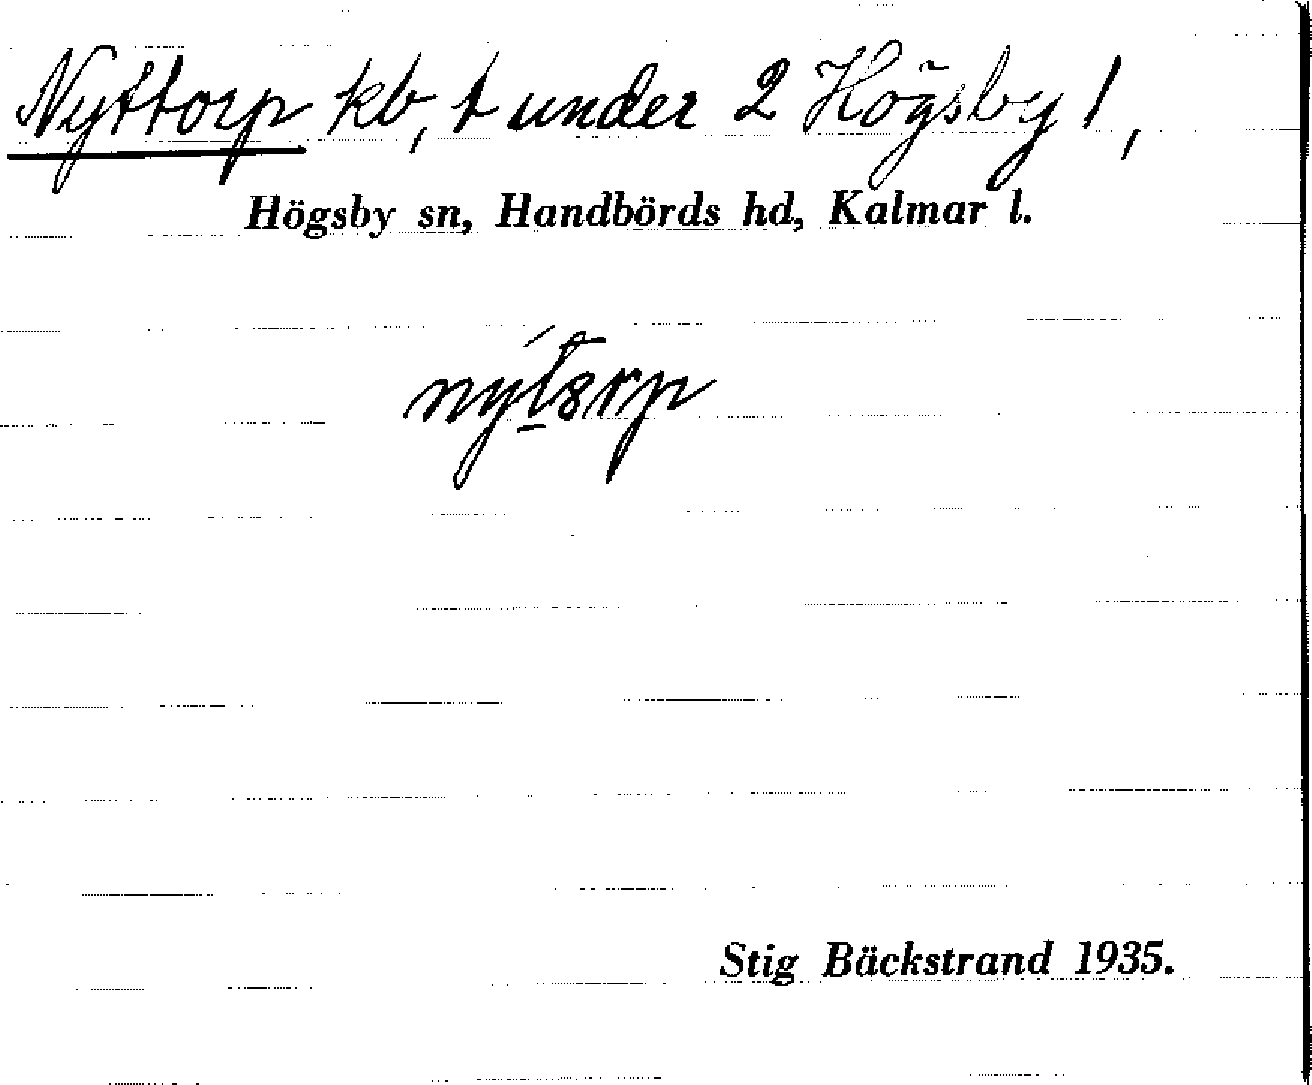 Nyttorp kb, t under 2 Högsby 1,
Högsby sn, Handbörds hd, Kalmar l.
Stig Bäckstrand 1935.